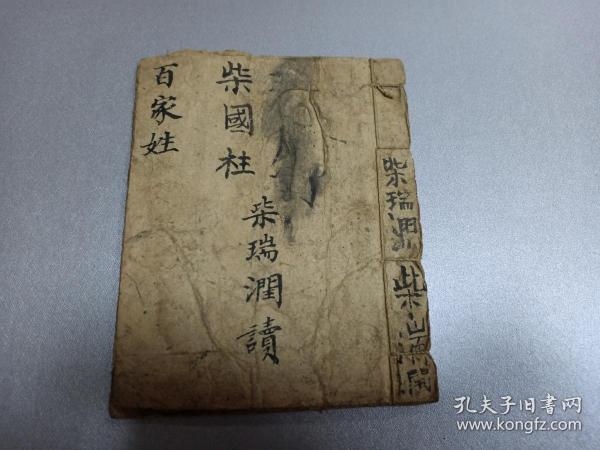 百家姓
柴國柱
柴瑞潤讀
柴瑞潤
柴瑞潤
孔夫子旧书网
www.kongfz.com